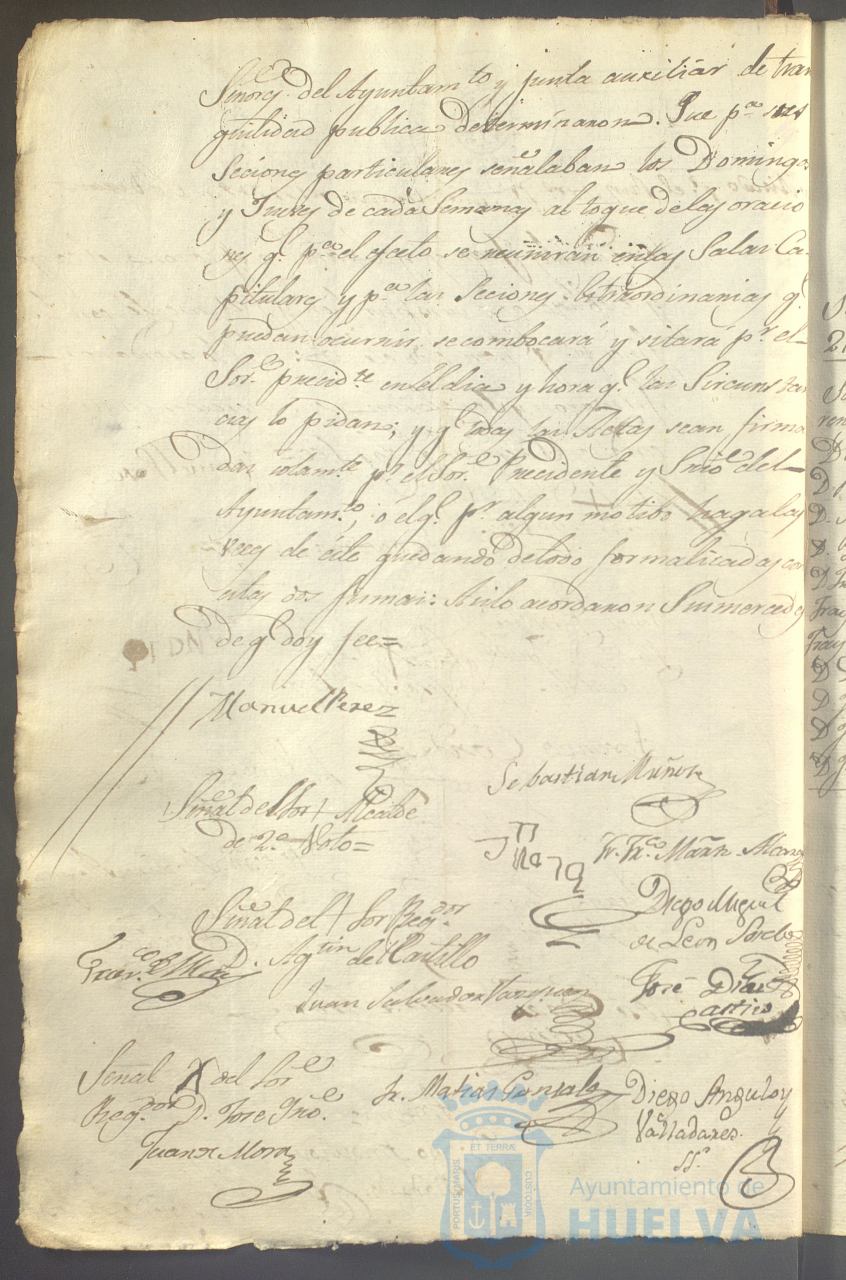 Señores del Ayuntamto y junta auxiliar de tran
quilidad publica determinaron. Que pa sus
Seciones particulares señalaban los Domingos
y Jueves de cada Semana al toque de las oracio
nes qe pa el efecto se reuniran en las Salas Ca-
pitulares y pa las Seciones extraordinarias qe
puedan ocurrir se combocará y sitará pr el
Sor precidte en el dia y hora qe las Sircunstan
cias lo pidan; y qe todas las Actas sean firma
das solamte pr el Sor Precidente y Srio del
Ayuntamto, ó el qe pr algun motibo haga las
veces de éste quedando de todo formalicadas con
estas dos firmas: Asi lo acordaron Sus mercedes
de qe doy fee=
Manuel Perez
Sebastian Muñoz
Señal del Sor + Alcalde
de 2o Voto=
Fr. Franco Marn
Señal del + Sor Regor
D. Agtin del Castillo
Diego Miguel
de Leon
Juan Salvador Vazquez
José Diaz
Señal X del Sor
Regor D. Jose
Juan Mora
Fr. Matias Gonzalez
Diego Angulo y
Valladares
ET TERRÆ
PORTUS MARIS
CUSTODIA
Ayuntamiento de
HUELVA